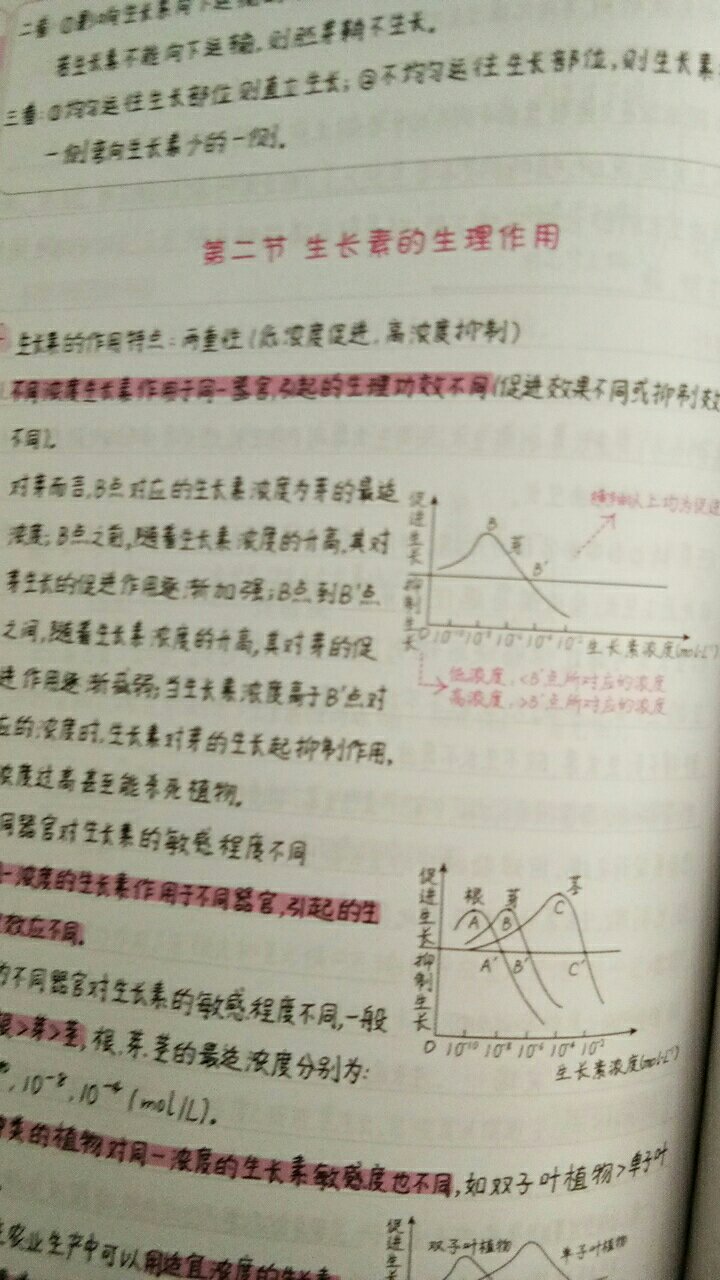 若生长素不能向下运输,则胚芽鞘不生长。
三看:①均匀运往生长部位则直立生长;②不均匀运往生长部位,则生长素
一侧弯向生长素少的一侧。
第二节 生长素的生理作用
生长素的作用特点:两重性(低浓度促进,高浓度抑制)
不同浓度生长素作用于同一器官,引起的生理功效不同(促进效果不同或抑制效
不同)。
对芽而言,B点对应的生长素浓度为芽的最适
浓度;B点之前,随着生长素浓度的升高,其对
芽生长的促进作用逐渐加强;B点到B'点
之间,随着生长素浓度的升高,其对芽的促
进作用逐渐减弱;当生长素浓度高于B'点对
应的浓度时,生长素对芽的生长起抑制作用,
浓度过高甚至能杀死植物。
促进生长
抑制生长
B 芽
B'
以上均为促进
0 10⁻¹⁰ 10⁻⁸ 10⁻⁶ 10⁻⁴ 10⁻² 生长素浓度(mol·L⁻¹)
低浓度,<B'点所对应的浓度
高浓度,>B'点所对应的浓度
同器官对生长素的敏感程度不同
一浓度的生长素作用于不同器官,引起的生
效应不同。
不同器官对生长素的敏感程度不同,一般
根>芽>茎,根、芽、茎的最适浓度分别为:
10⁻⁸,10⁻⁴(mol/L)。
促进生长
抑制生长
根 芽 茎
A B C
A' B' C'
0 10⁻¹⁰ 10⁻⁸ 10⁻⁶ 10⁻⁴ 10⁻²
生长素浓度(mol·L⁻¹)
类的植物对同一浓度的生长素敏感度也不同,如双子叶植物>单子叶
农业生产中可以用适宜浓度的生长素
促进生
双子叶植物 单子叶植物